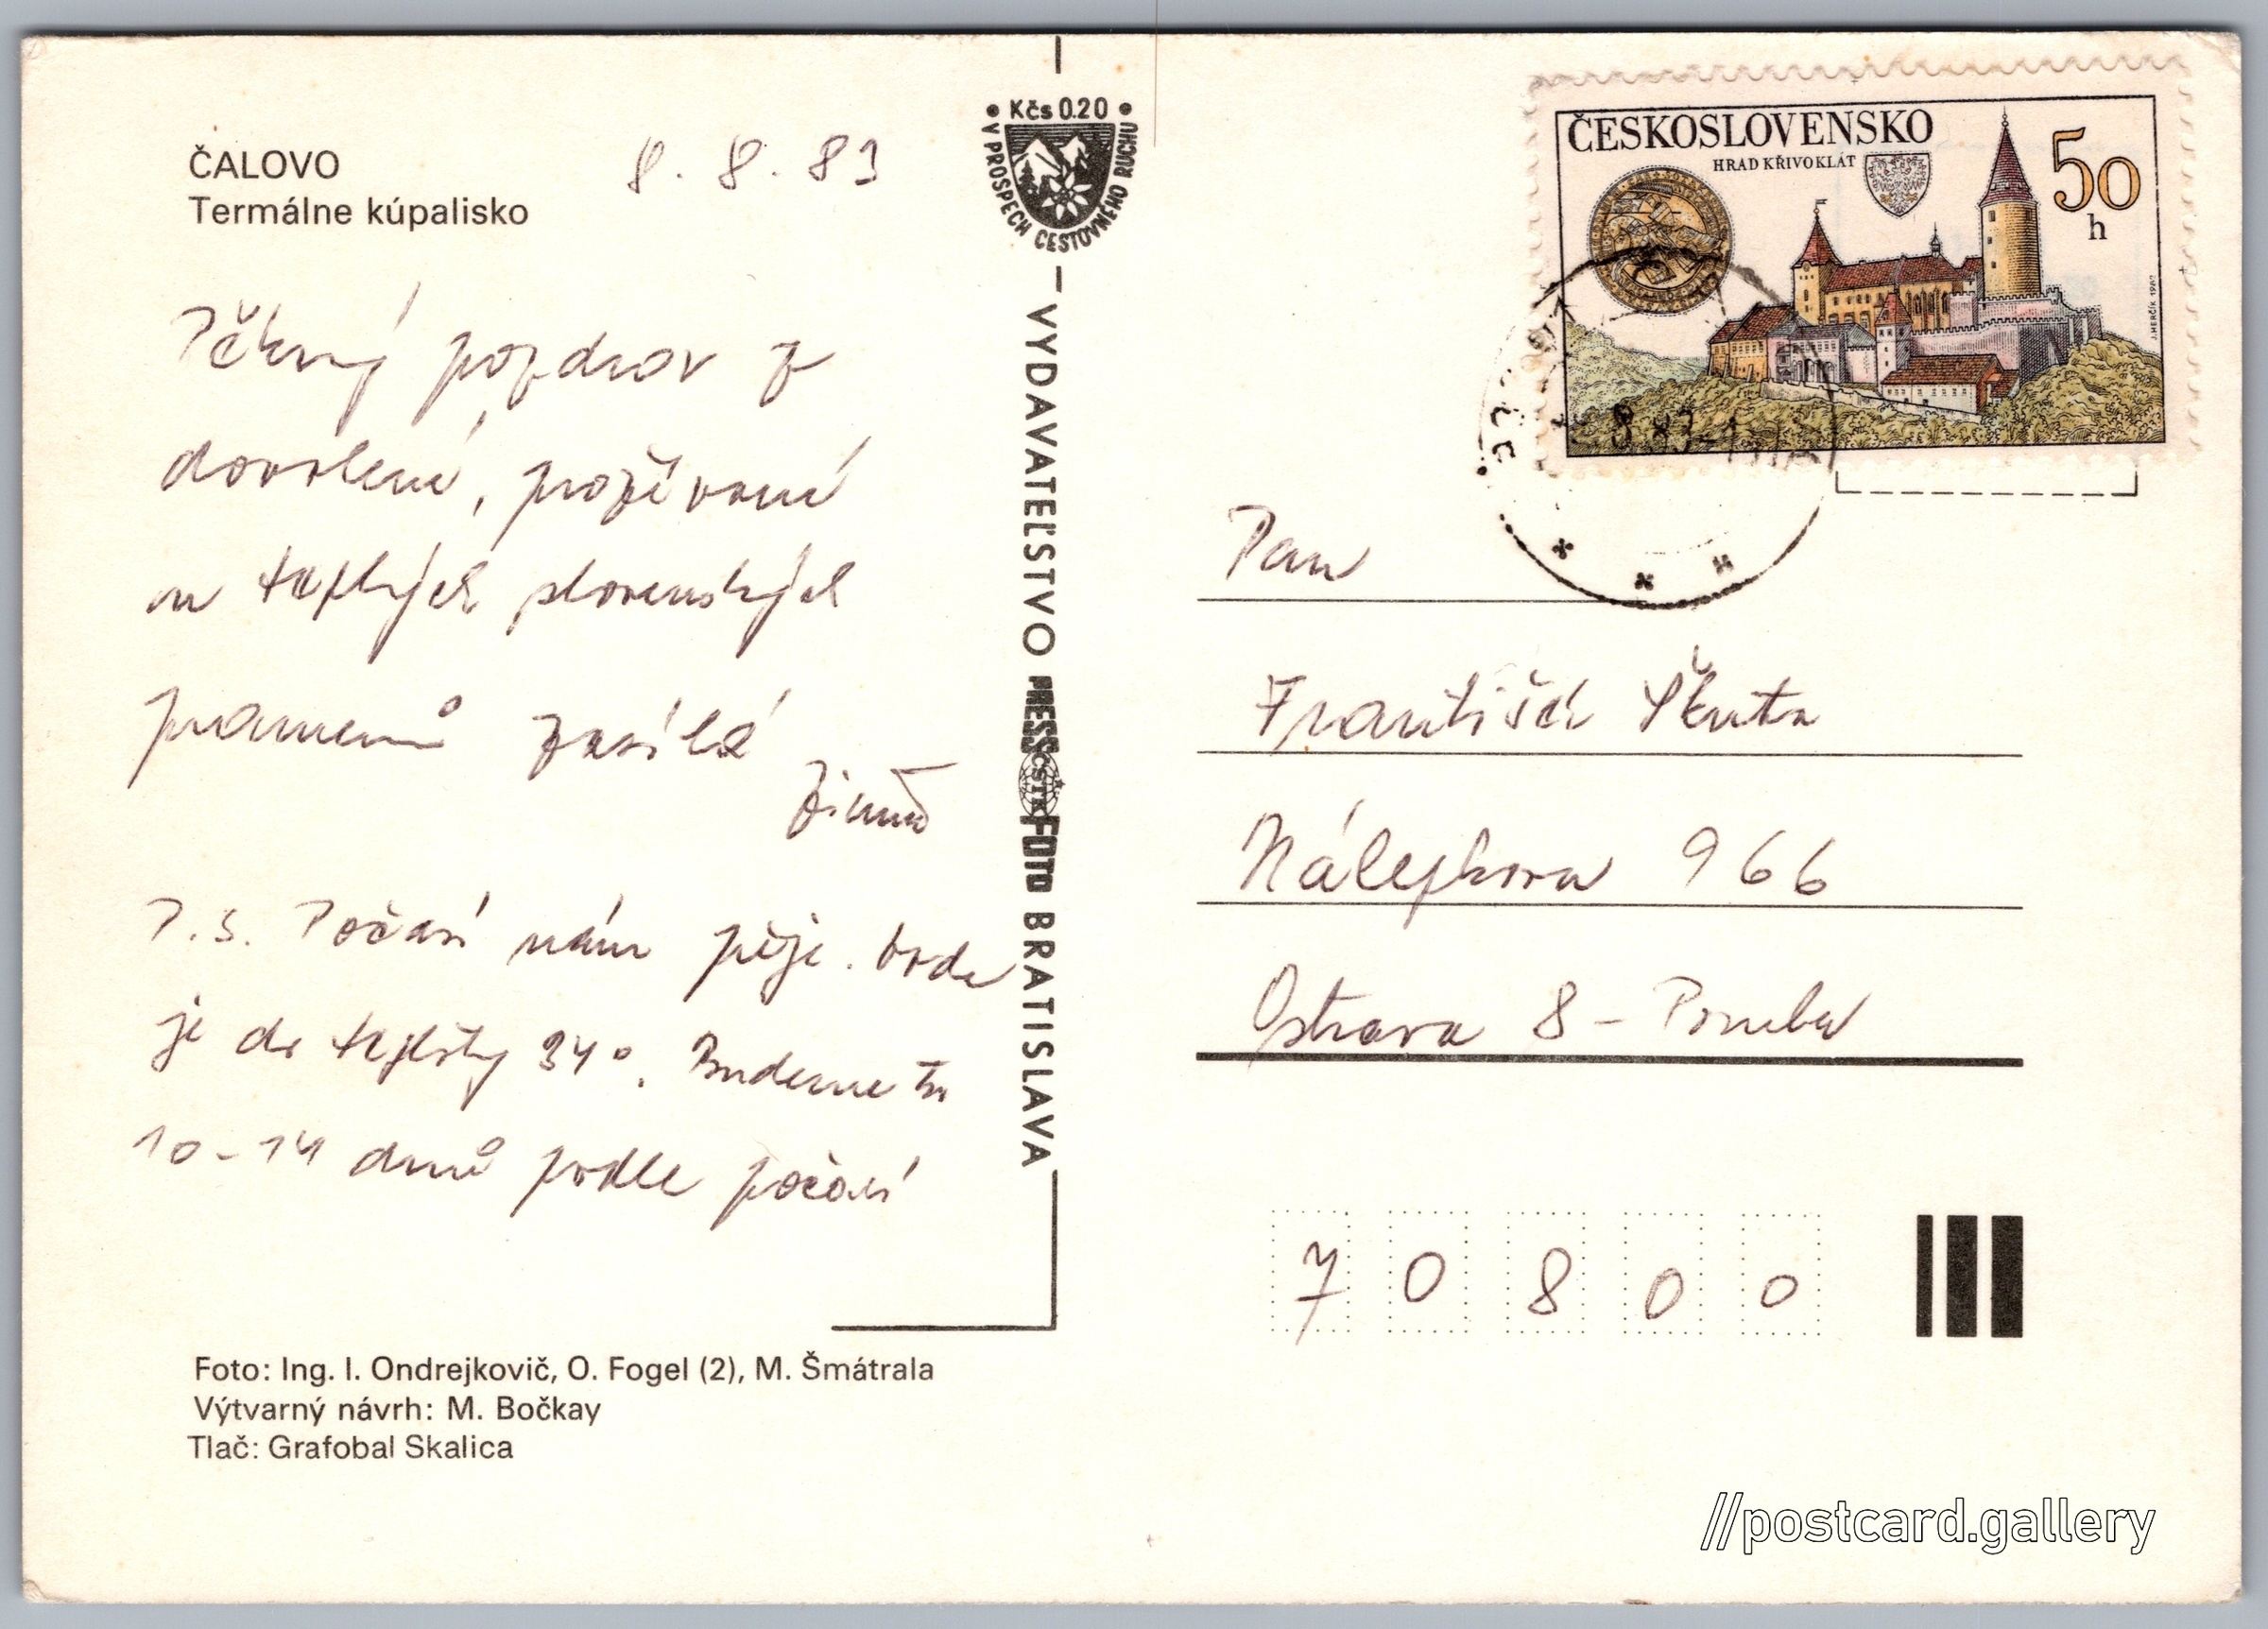 ČALOVO
Termálne kúpalisko
8. 8. 83
Pěkný pozdrav z
dovolené, prožívané
u teplých slovenských
pramenů zasílá
P.S. Počasí nám přeje. Voda
je do teploty 34°. Budeme tu
10-14 dnů podle počasí
Foto: Ing. I. Ondrejkovič, O. Fogel (2), M. Šmátrala
Výtvarný návrh: M. Bočkay
Tlač: Grafobal Skalica
Kčs 0.20
V PROSPECH CESTOVNÉHO RUCHU
VYDAVATEĽSTVO PRESSFOTO BRATISLAVA
ČSTK
ČESKOSLOVENSKO
HRAD KŘIVOKLÁT
50
h
J. HERČÍK 1982
Pan
František Škuta
Nálepkova 966
Ostrava 8 - Poruba
7 0 8 0 0
//postcard.gallery